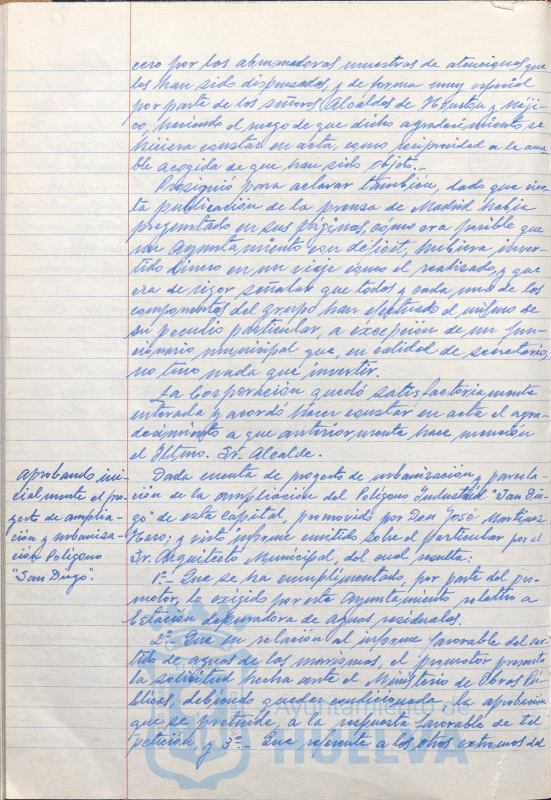 cero por las abrumadoras muestras de atenciones que
les han sido dispensadas, y de forma muy especial
por parte de los señores Alcaldes de Houston y Méji-
co, haciendo el ruego de que dicho agradecimiento se
hiciera constar en acta, como reciprocidad a la ama-
ble acogida de que han sido objeto.-
Prosiguió para aclarar también, dado que cier-
ta publicación de la prensa de Madrid había
preguntado en sus páginas, cómo era posible que
un Ayuntamiento con déficit, hubiera inver-
tido dinero en un viaje como el realizado, y que
era de rigor señalar que todos y cada uno de los
componentes del grupo han efectuado el mismo de
su peculio particular, a excepción de un fun-
cionario municipal que, en calidad de secretario,
no tuvo nada que invertir.
La Corporación quedó satisfactoriamente
enterada y acordó hacer constar en acta el agra-
decimiento a que anteriormente hace mención
el Iltmo. Sr. Alcalde.
aprobando ini-
cialmente el pro-
yecto de amplia-
ción y urbaniza-
ción Polígono
"San Diego".
Dada cuenta de proyecto de urbanización y parcela-
ción de la ampliación del Polígono Industrial "San Die-
go" de esta capital, promovido por Don José Martínez
y visto informe emitido sobre el particular por el
Sr. Arquitecto Municipal, del cual resulta:
1º.- Que se ha cumplimentado, por parte del pro-
motor, lo exigido por este Ayuntamiento relativo a
Estación depuradora de aguas residuales.
2º.- Que en relación al informe favorable del ver-
tido de aguas de las marismas, el promotor presenta
la solicitud hecha ante el Ministerio de Obras Pú-
blicas, debiendo quedar condicionada la aprobación
que se pretende, a la respuesta favorable de tal
petición, y 3º.- Que, referente a los otros extremos del
Ayuntamiento de
HUELVA